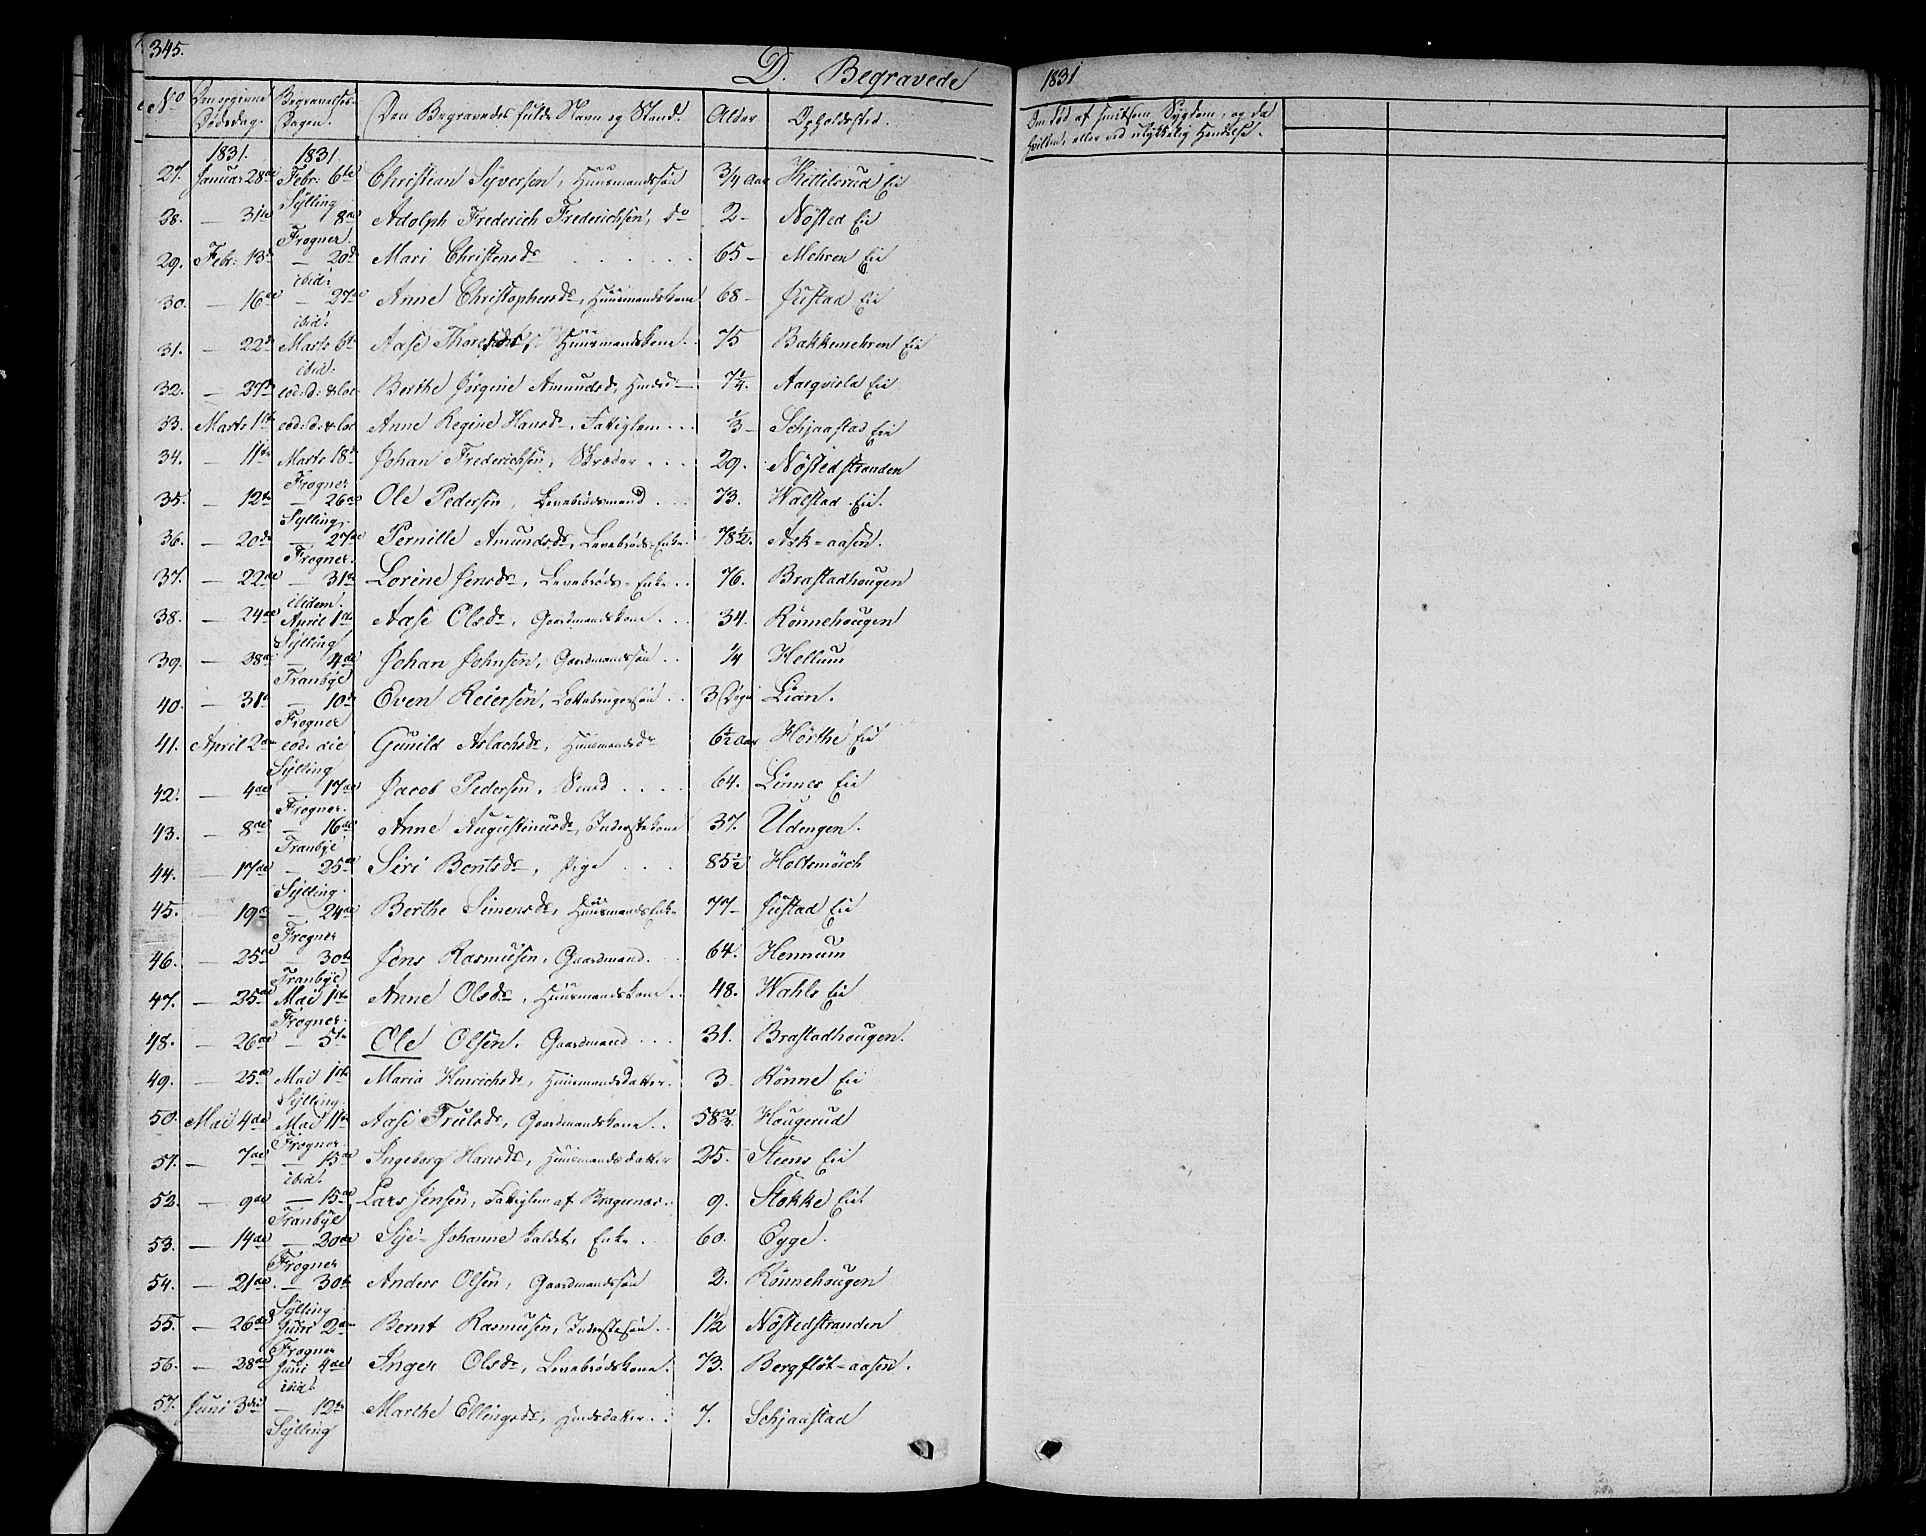 345.
D. Begravede
1831
No Den opgivne Dødsdag. Begravelses-Dagen. Den Begravedes fulde Navn og Stand. Alder Opholdssted.
Om død af smitsom Sygdom, og da
hvilken, eller ved ulykkelig Hændelse.
1831. 1831
27. Januar 28de Febr: 6te Christian Syversen, Huusmandssøn 3/4 Aar Kittilsrud Eie
Sylling
28. — 31te 8de Adolph Frederich Frederichsen, do 2- Nøsted Eie
Frogner.
29. Febr: 13de — 20de Mari Christensdr 65- Mehren Eie
ibid:
30. — 16de — 27de Anne Christophersdr, Huusmandskone 68- Justad Eie
ibid:
31. — 22de Marts 6te Aase Thoresdr, Huusmandskone 75 Bakkemehren Eie
ibid:
32. — 27de eod: d: & loc Berthe Jørgine Amundsdr, Huusdr 7 1/4. Aarqvisla Eie
33. Marts 1ste eod: d: & loc Anne Regine Hansdr, Fattiglem 1/3- Schjaastad Eie
34. — 11te Marts 18de Johan Frederichsen, Skræder 29. Nøstedstranden
Frogner
35. — 12te — 26de Ole Pedersen, Levebrødsmand 73. Walstad Eie.
Sylling.
36. — 20de — 27de Pernille Amundsdr, Levebrøds-Enke 78 1/2. Ask-aasen.
Frogner.
37. — 22de — 31te Lorine Jensdr, Levebrøds-Enke 76. Brastadhougen
ibidem.
38. — 24de April 1ste Aase Olsdr, Gaardmandskone. 34. Rönnehougen
Sylling
39. — 28de — 4de Johan Johnsen, Gaardmandssøn 1/4 Hellum
Tranbye
40. — 31te — 10de Even Reiersen, Lottebrugersøn 3 Døgn Lian.
Frogner
41. April 2den eod: die Gunild Aslachsdr, Huusmandsdr 6 1/2 Aar Hörthe Eie
Sylling
42. — 4de — 17de Jacob Pedersen, Smed 64. Linnes Eie
Frogner.
43. — 8de — 16de Anne Augustinusdr, Inderstekone 37. Udengen.
Tranbye
44. — 17de — 25de Siri Bentsdr, Pige 85 1/2 Holtsmörch
Sylling.
45. — 19de — 24de Berthe Simensdr, HuusmandsEnke 77- Justad Eie
Frogner
46. — 25de — 30te Jens Rasmusen, Gaardmand. 64. Hennum
Tranbye
47. — 25de Mai 1ste Anne Olsdr, Huusmandskone 48. Wahls Eie
Frogner.
48. — 26de — 5te Ole Olsen. Gaardmand 31. Brastadhougen.
49. — 25de Mai 1ste Maria Henrichsdr, Huusmandsdatter 3 Rönne Eie
Sylling.
50. Mai 4de Mai 11te Aase Trulsdr, Gaardmandskone 58 3/4. Hougerud
Frogner
51. — 7de — 15de Ingeborg Hansdr, Huusmandsdatter 25. Steens Eie
ibid:
52. — 9de — 15de Lars Jensen, Fattiglem af Bragernæs 9. Stokke Eie
Tranbye
53. — 14de — 20de Sye-Johanne kaldet, Enke 60. Eyge.
Frogner
54. — 21de — 30te Anders Olsen, Gaardmandssøn 2. Rönnehougen
Sylling
55. — 26de Juni 2den Bernt Rasmusen, Inderstesøn 1 1/2 Nøstedstranden
Frogner
56. — 28de Juni 4de Inger Olsdr, Levebrødskone 73. Bergfløt-aasen.
ibid:
57. Juni 3die — 12te Marthe Ellingsdr, Huusdatter 7. Schjaastad
Sylling